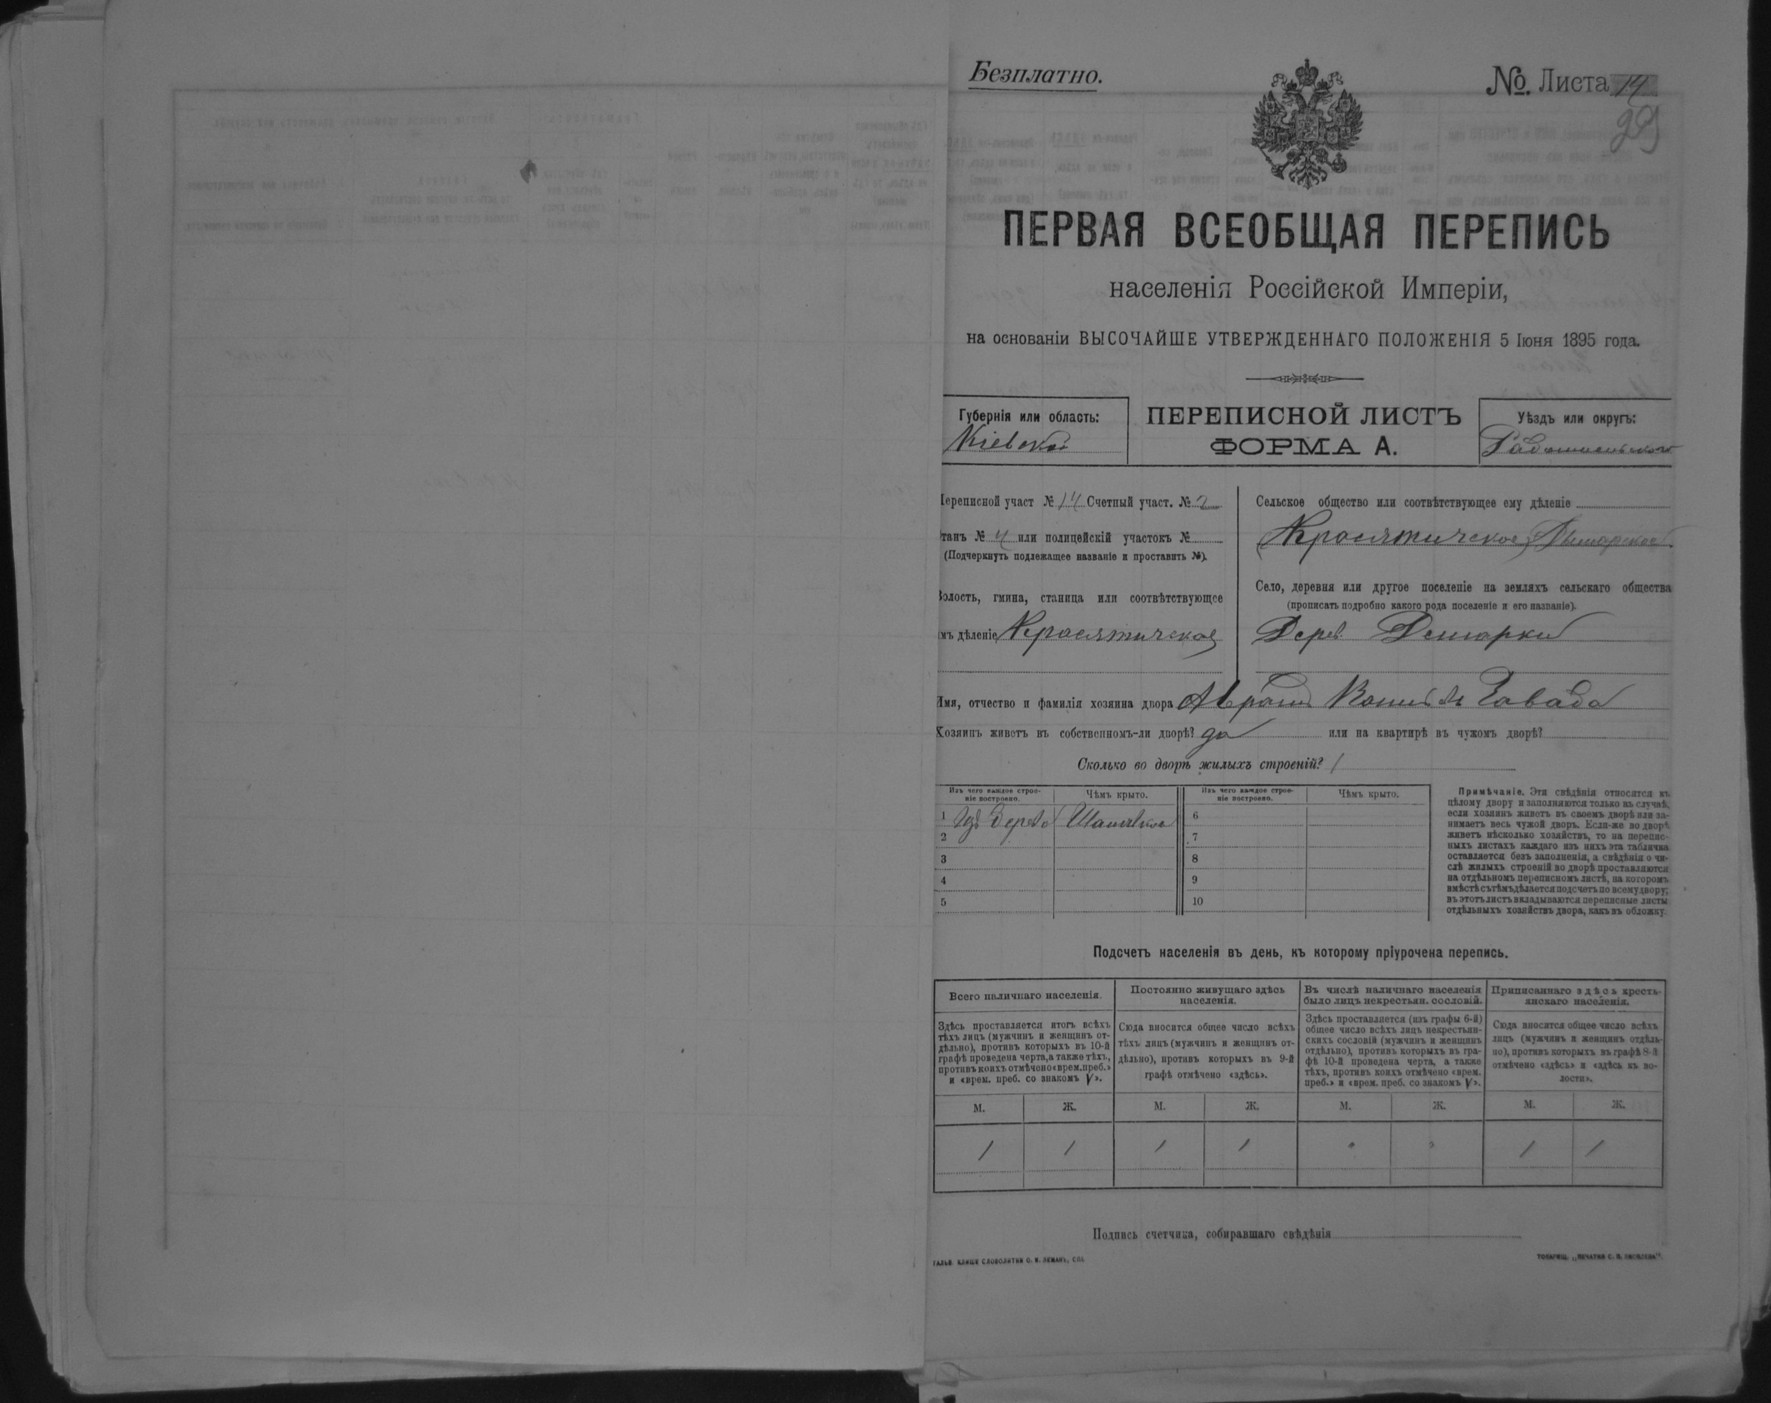 Безплатно.
№. Листа 14
29
ПЕРВАЯ ВСЕОБЩАЯ ПЕРЕПИСЬ
населенія Россійской Имперіи,
на основаніи ВЫСОЧАЙШЕ УТВЕРЖДЕННАГО ПОЛОЖЕНІЯ 5 Іюня 1895 года.
Губернія или область:
Кіевская
ПЕРЕПИСНОЙ ЛИСТЪ
ФОРМА А.
Уѣздъ или округъ:
Радомысльскій
Переписной участ № 14 Счетный участ. № 2
Станъ № 4 или полицейскій участокъ №
(Подчеркнуть подлежащее названіе и проставить №).
Волость, гмина, станица или соотвѣтствующее
имъ дѣленіе Красятичская
Сельское общество или соотвѣтствующее ему дѣленіе
Красятичское
Село, деревня или другое поселеніе на земляхъ сельскаго общества
(прописать подробно какого рода поселеніе и его названіе).
Дерев
Имя, отчество и фамилія хозяина двора
Хозяинъ живетъ въ собственномъ-ли дворѣ? да или на квартирѣ въ чужомъ дворѣ?
Сколько во дворѣ жилыхъ строеній? 1
Изъ чего каждое строе-
ніе построено.
Чѣмъ крыто.
Изъ чего каждое строе-
ніе построено.
Чѣмъ крыто.
1 Изъ дерева
6
2
7
3
8
4
9
5
10
Примѣчаніе. Эти свѣдѣнія относятся къ
цѣлому двору и заполняются только въ случаѣ,
если хозяинъ живетъ въ своемъ дворѣ или за-
нимаетъ весь чужой дворъ. Если-же во дворѣ
живетъ нѣсколько хозяйствъ, то на перепис-
ныхъ листахъ каждаго изъ нихъ эта табличка
оставляется безъ заполненія, а свѣдѣнія о чи-
слѣ жилыхъ строеній во дворѣ проставляются
на отдѣльномъ переписномъ листѣ, на которомъ
вмѣстѣ съ тѣмъ дѣлается подсчетъ по всему двору;
въ этотъ листъ вкладываются переписные листы
отдѣльныхъ хозяйствъ двора, какъ въ обложку.
Подсчетъ населенія въ день, къ которому пріурочена перепись.
Всего наличнаго населенія.
Здѣсь проставляется итогъ всѣхъ
тѣхъ лицъ (мужчинъ и женщинъ от-
дѣльно), противъ которыхъ въ 10-й
графѣ проведена черта, а также тѣхъ,
противъ коихъ отмѣчено «врем. преб.»
и «врем. преб. со знакомъ V».
Постоянно живущаго здѣсь
населенія.
Сюда вносится общее число всѣхъ
тѣхъ лицъ (мужчинъ и женщинъ от-
дѣльно), противъ которыхъ въ 9-й
графѣ отмѣчено «здѣсь».
Въ числѣ наличнаго населенія
было лицъ некрестьян. сословій.
Здѣсь проставляется (изъ графы 6-й)
общее число всѣхъ лицъ некрестьян-
скихъ сословій (мужчинъ и женщинъ
отдѣльно), противъ которыхъ въ гра-
фѣ 10-й проведена черта, а также
тѣхъ, противъ коихъ отмѣчено «врем.
преб.» и «врем. преб. со знакомъ V».
Приписаннаго здѣсь кресть-
янскаго населенія.
Сюда вносится общее число всѣхъ
лицъ (мужчинъ и женщинъ отдѣль-
но), противъ которыхъ въ графѣ 8-й
отмѣчено «здѣсь» и «здѣсь въ во-
лости».
М. Ж. М. Ж. М. Ж. М. Ж.
1 1 1 1 " " 1 1
Подпись счетчика, собиравшаго свѣдѣнія